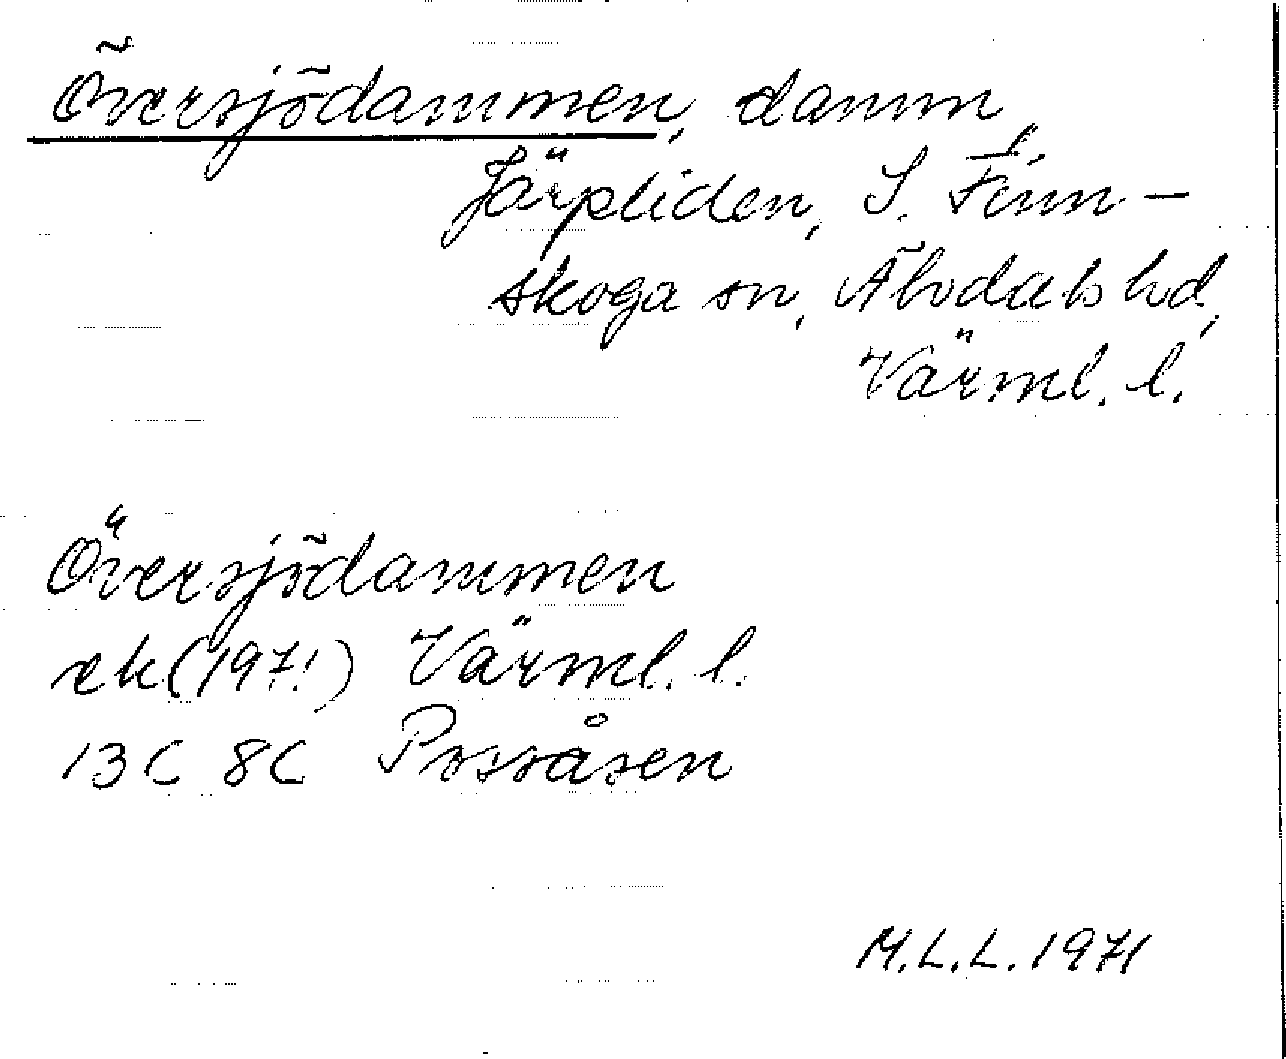 Översjödammen, damm,
Järpliden, S. Finn-
skoga sn, Älvdals hd,
Värml. l.
Översjödammen
ek (1971) Värml. l.
13C 8C Possåsen
M.L.L. 1971